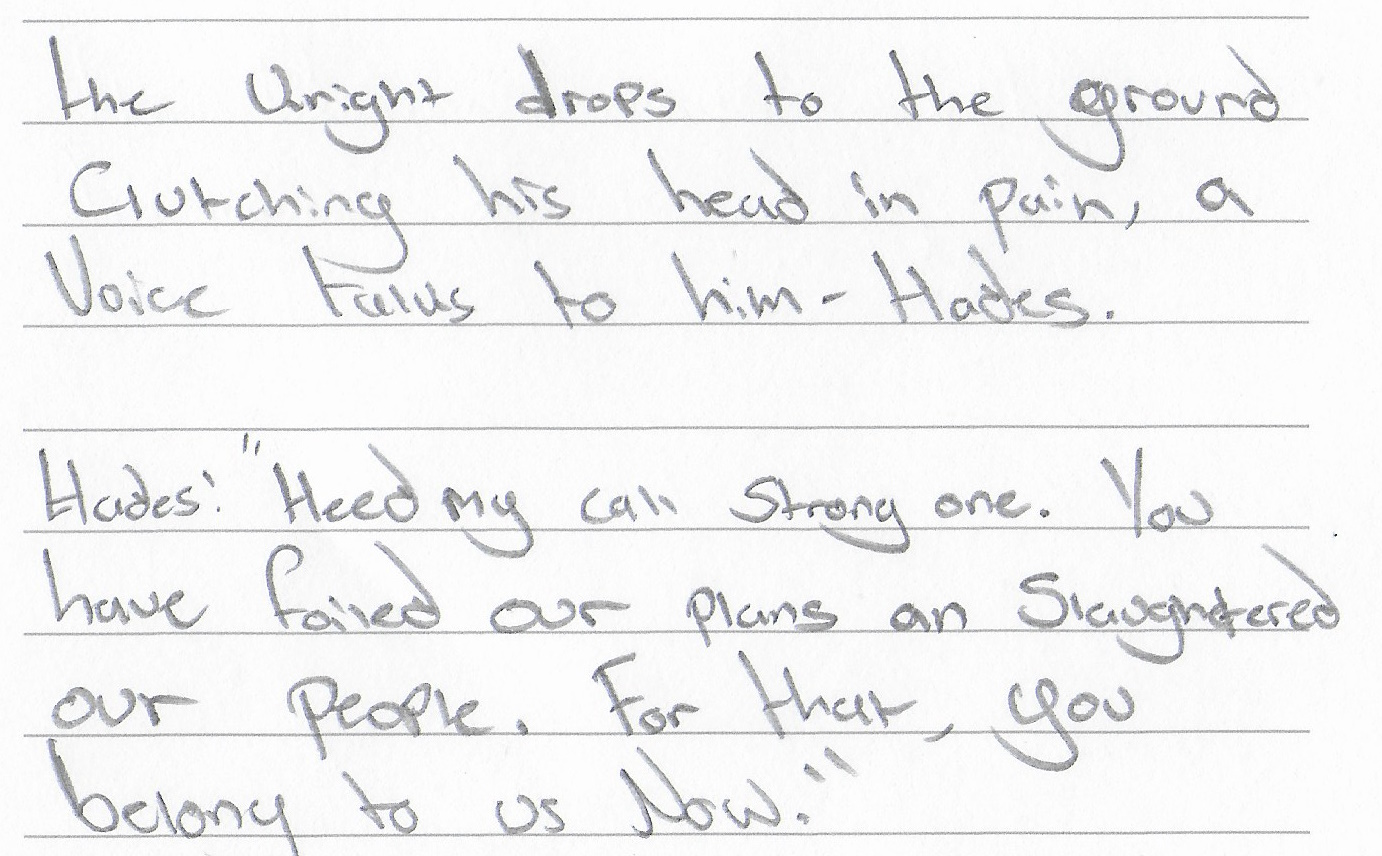 the Wright drops to the ground
Clutching his head in pain, a
Voice talks to him - Hades.
Hades: "Heed my call Strong one. You
have foiled our plans an Slaughtered
our people. For that, you
belong to us Now."